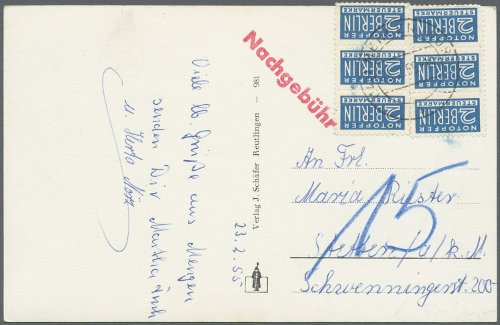 Viele lb Grüße aus Mengen
senden Dir Martha
u Herta
23.2.55
Verlag J. Schäfer Reutlingen — 981
Nachgebühr
NOTOPFER
2 BERLIN
STEUERMARKE
NOTOPFER
2 BERLIN
STEUERMARKE
NOTOPFER
2 BERLIN
STEUERMARKE
NOTOPFER
2 BERLIN
STEUERMARKE
NOTOPFER
2 BERLIN
STEUERMARKE
NOTOPFER
2 BERLIN
STEUERMARKE
15
An Frl.
Maria
Stetten a/k. M.
Schwenningerst. 200